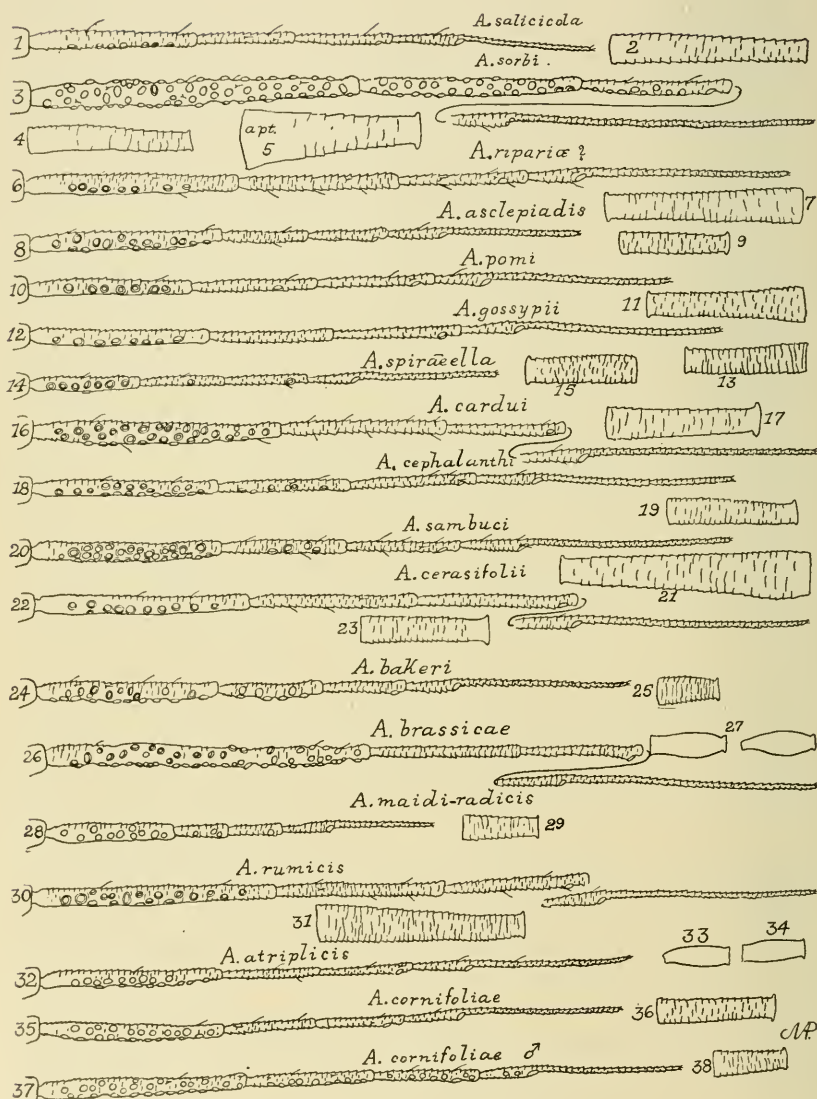 A. salicicola
1 2
A. sorbi.
3
4 apt. 5
A. ripariæ ?
6
7
A. asclepiadis
8 9
A. pomi
10 11
A. gossypii
12 13
A. spiræella
14 15
A. cardui
16 17
A. cephalanthi
18
19
A. sambuci
20
A. cerasifolii
21
22
23
A. bakeri
24 25
A. brassicae
26 27
A. maidi-radicis
28 29
A. rumicis
30
31
A. atriplicis
32 33 34
A. cornifoliae
35 36
A. cornifoliae ♂
37 38